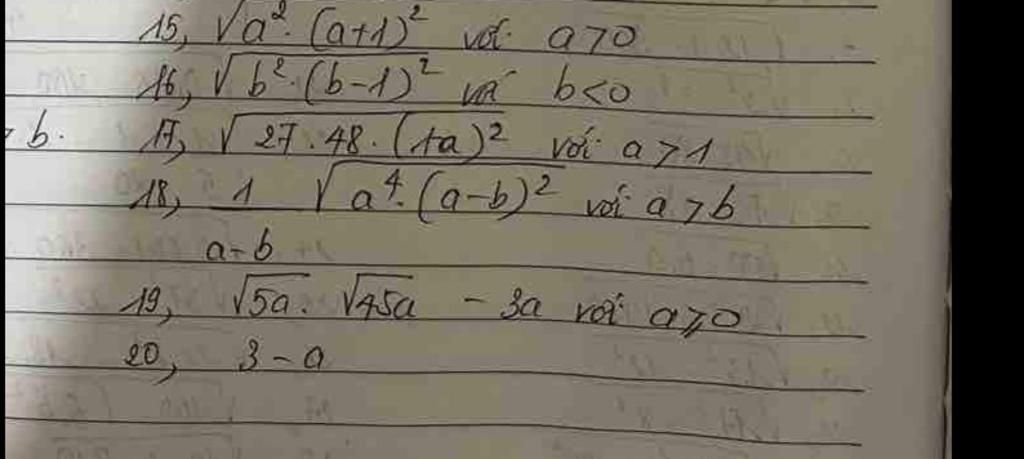 15, √a². (a+1)² với a>0
16, √b².(b-1)² với b<0
> b. 17, √27.48.(1+a)² với a>1
18, 1 √a⁴.(a-b)² với a>b
a-b
19, √5a. √45a - 3a với a⩾0
20, 3-a